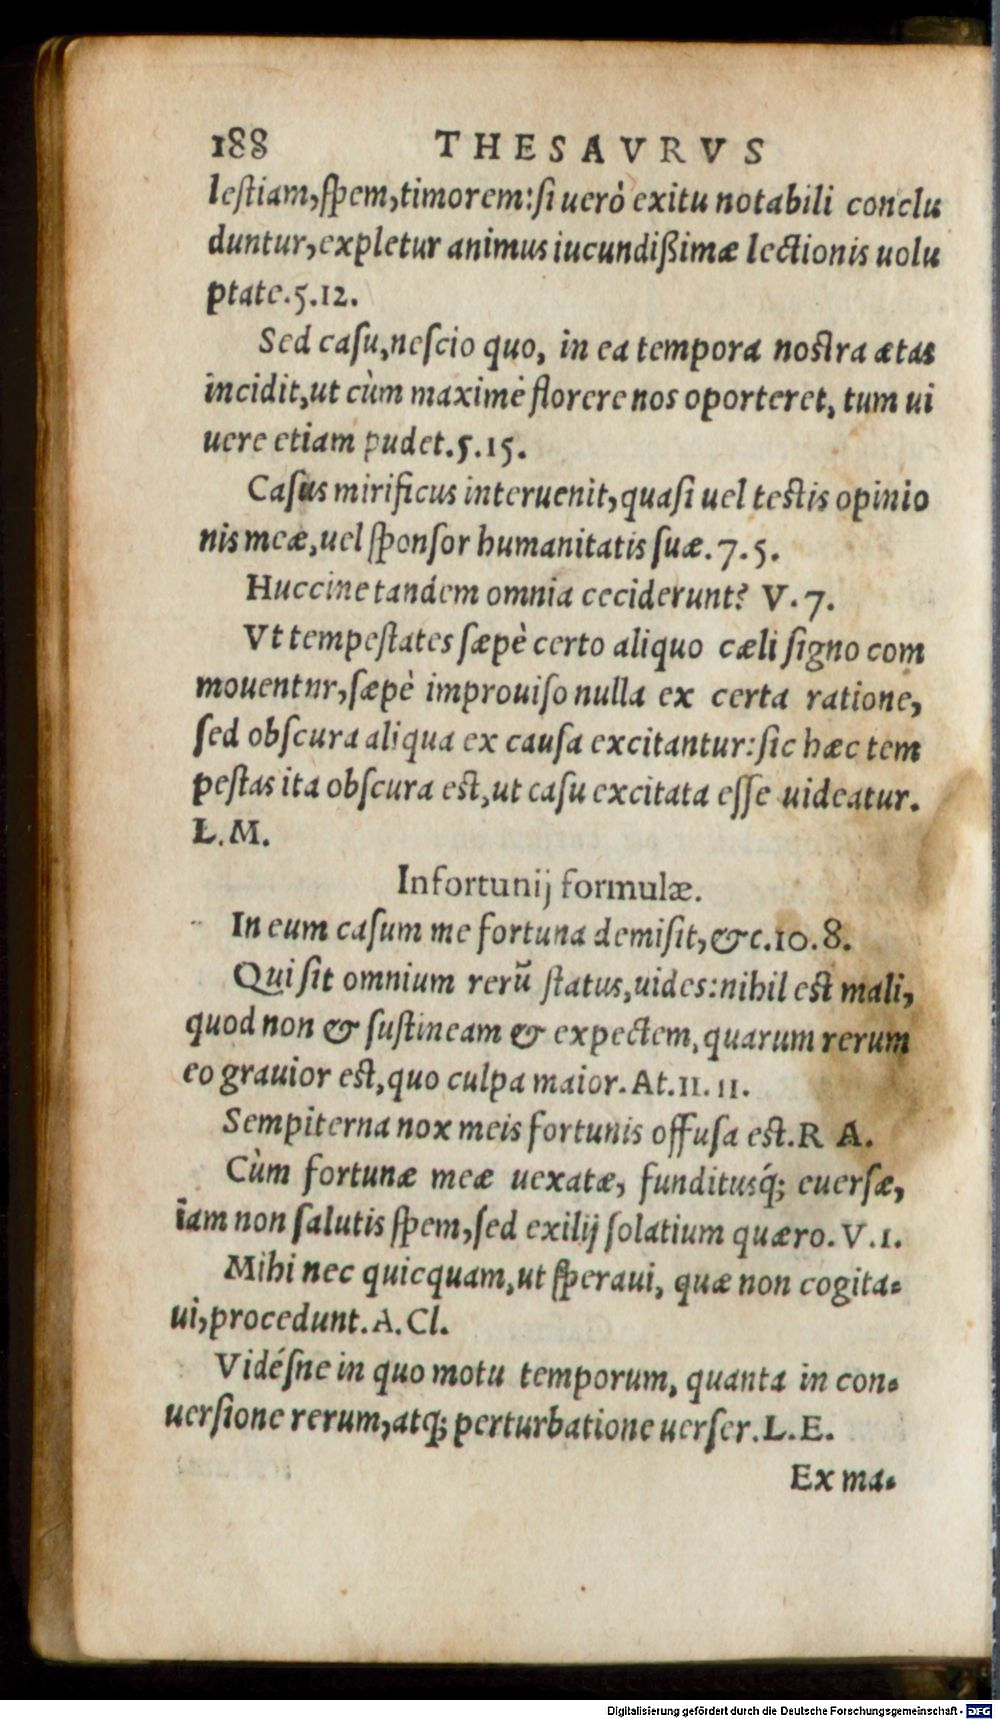 188 THESAVRVS
leſtiam, ſpem, timorem: ſi uerò exitu notabili conclu
duntur, expletur animus iucundißimæ lectionis uolu
ptate. 5. 12.
Sed caſu, neſcio quo, in ea tempora noſtra ætas
incidit, ut cùm maximè florere nos oporteret, tum ui
uere etiam pudet. 5. 15.
Caſus mirificus interuenit, quaſi uel teſtis opinio
nis meæ, uel ſponſor humanitatis ſuæ. 7. 5.
Huccine tandem omnia ceciderunt? V. 7.
Vt tempeſtates ſæpè certo aliquo cæli ſigno com
mouentnr, ſæpè improuiſo nulla ex certa ratione,
ſed obſcura aliqua ex cauſa excitantur: ſic hæc tem
peſtas ita obſcura eſt, ut caſu excitata eſſe uideatur.
L. M.
Infortunij formulæ.
In eum caſum me fortuna demiſit, &c. 10. 8.
Qui ſit omnium rerū ſtatus, uides: nihil eſt mali,
quod non & ſuſtineam & expectem, quarum rerum
eo grauior eſt, quo culpa maior. At. 11. 11.
Sempiterna nox meis fortunis offuſa eſt. R A.
Cùm fortunæ meæ uexatæ, funditusq́; euerſæ,
iam non ſalutis ſpem, ſed exilij ſolatium quæro. V. 1.
Mihi nec quicquam, ut ſperaui, quæ non cogita-
ui, procedunt. A. Cl.
Vidéſne in quo motu temporum, quanta in con-
uerſione rerum, atq; perturbatione uerſer. L. E.
Ex ma-
Digitalisierung gefördert durch die Deutsche Forschungsgemeinschaft - DFG